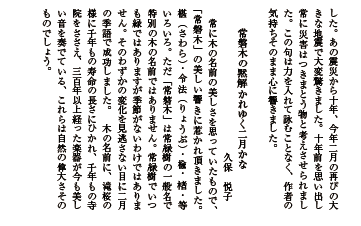 した。あの震災から十年、今年二月の再びの大
きな地震で大変驚きました。十年前を思い出し
常に災害はつきまとう物と考えさせられまし
た。この句は力を入れて詠むことなく、作者の
気持ちそのまま心に響きました。
常磐木の黙解かれゆく二月かな
久保 悦子
常に木の名前の美しさを思っていたもので、
「常磐木」の美しい響きに惹かれ頂きました。
椹（さわら）・令法（りょうぶ）・橡・楮・等
いろいろ。ただ「常磐木」は常緑樹の一般名で
特別の木の名前ではありません。常緑樹でいつ
も緑ではありますが季節がないわけではありま
せん。そのわずかの変化を見逃さない目に二月
の季語で成功しました。 木の名前に、滝桜の
様に千年もの寿命の長さにひかれ、千年もの寺
院をささえ、三百年以上経った楽器が今も美し
い音を奏でている、これらは自然の偉大さその
ものでしょう。